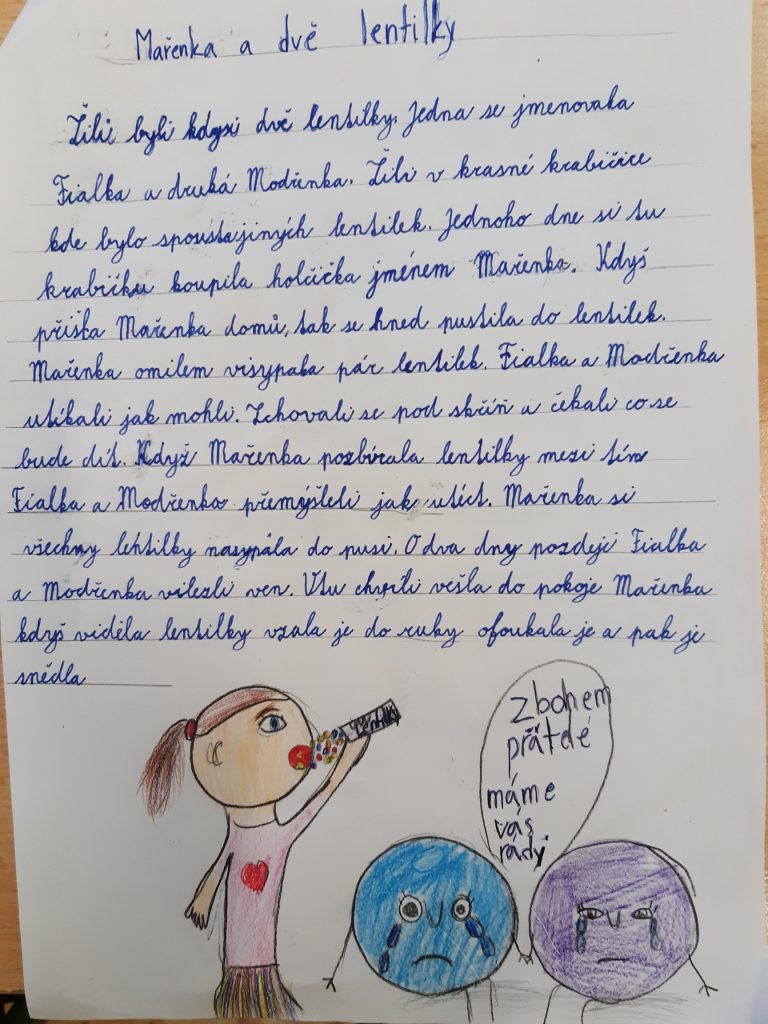 Mařenka a dvě lentilky
Žili byli kdysi dvě lentilky. Jedna se jmenovala
Fialka a druhá Modřenka. Žili v krasné krabičice
kde bylo spousta jiných lentilek. Jednoho dne si tu
krabičku koupila holčička jménem Mařenka. Kdyš
přišla Mařenka domů, tak se hned pustila do lentilek.
Mařenka omilem visypala pár lentilek. Fialka a Modřenka
utíkali jak mohli. Schovali se pod skříň a čekali co se
bude dít. Když Mařenka pozbírala lentilky mezi tím
Fialka a Modřenka přemýšleli jak utéct. Mařenka si
všechny lentilky nasypála do pusi. O dva dny pozdeji Fialka
a Modřenka vilezli ven. Vtu chvíli vešla do pokoje Mařenka
kdyš viděla lentilky vzala je do ruky ofoukala je a pak je
snědla
Lentilky
zbohem
přátelé
máme
vás
rády.